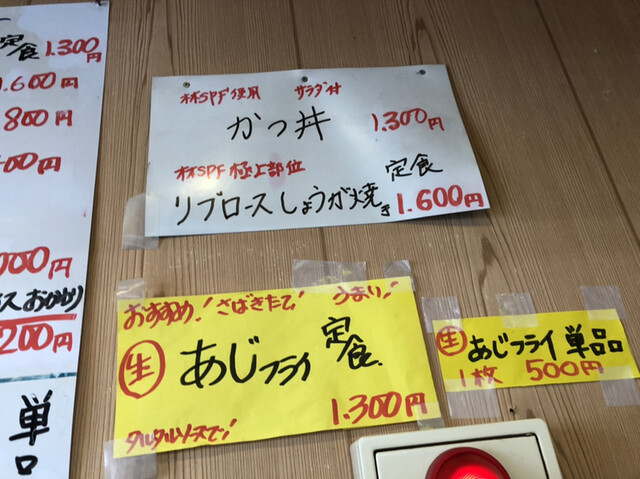 定食 1.300円
1.600円
800円
00円
000円
ス おかわり
200円
単
林SPF使用 サラダ付
かつ丼 1.300円
林SPF極上部位 定食
リブロースしょうが焼き 1.600円
おすすめ! さばきたて! うまい!
生 あじフライ 定食
1.300円
タルタルソースで!
生 あじフライ 単品
1枚 500円